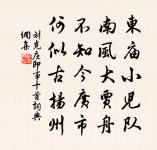 東庙小兒队
南風大賈舟
不知今廣市
何似古揚州
刘克庄即事十首詞典
網集